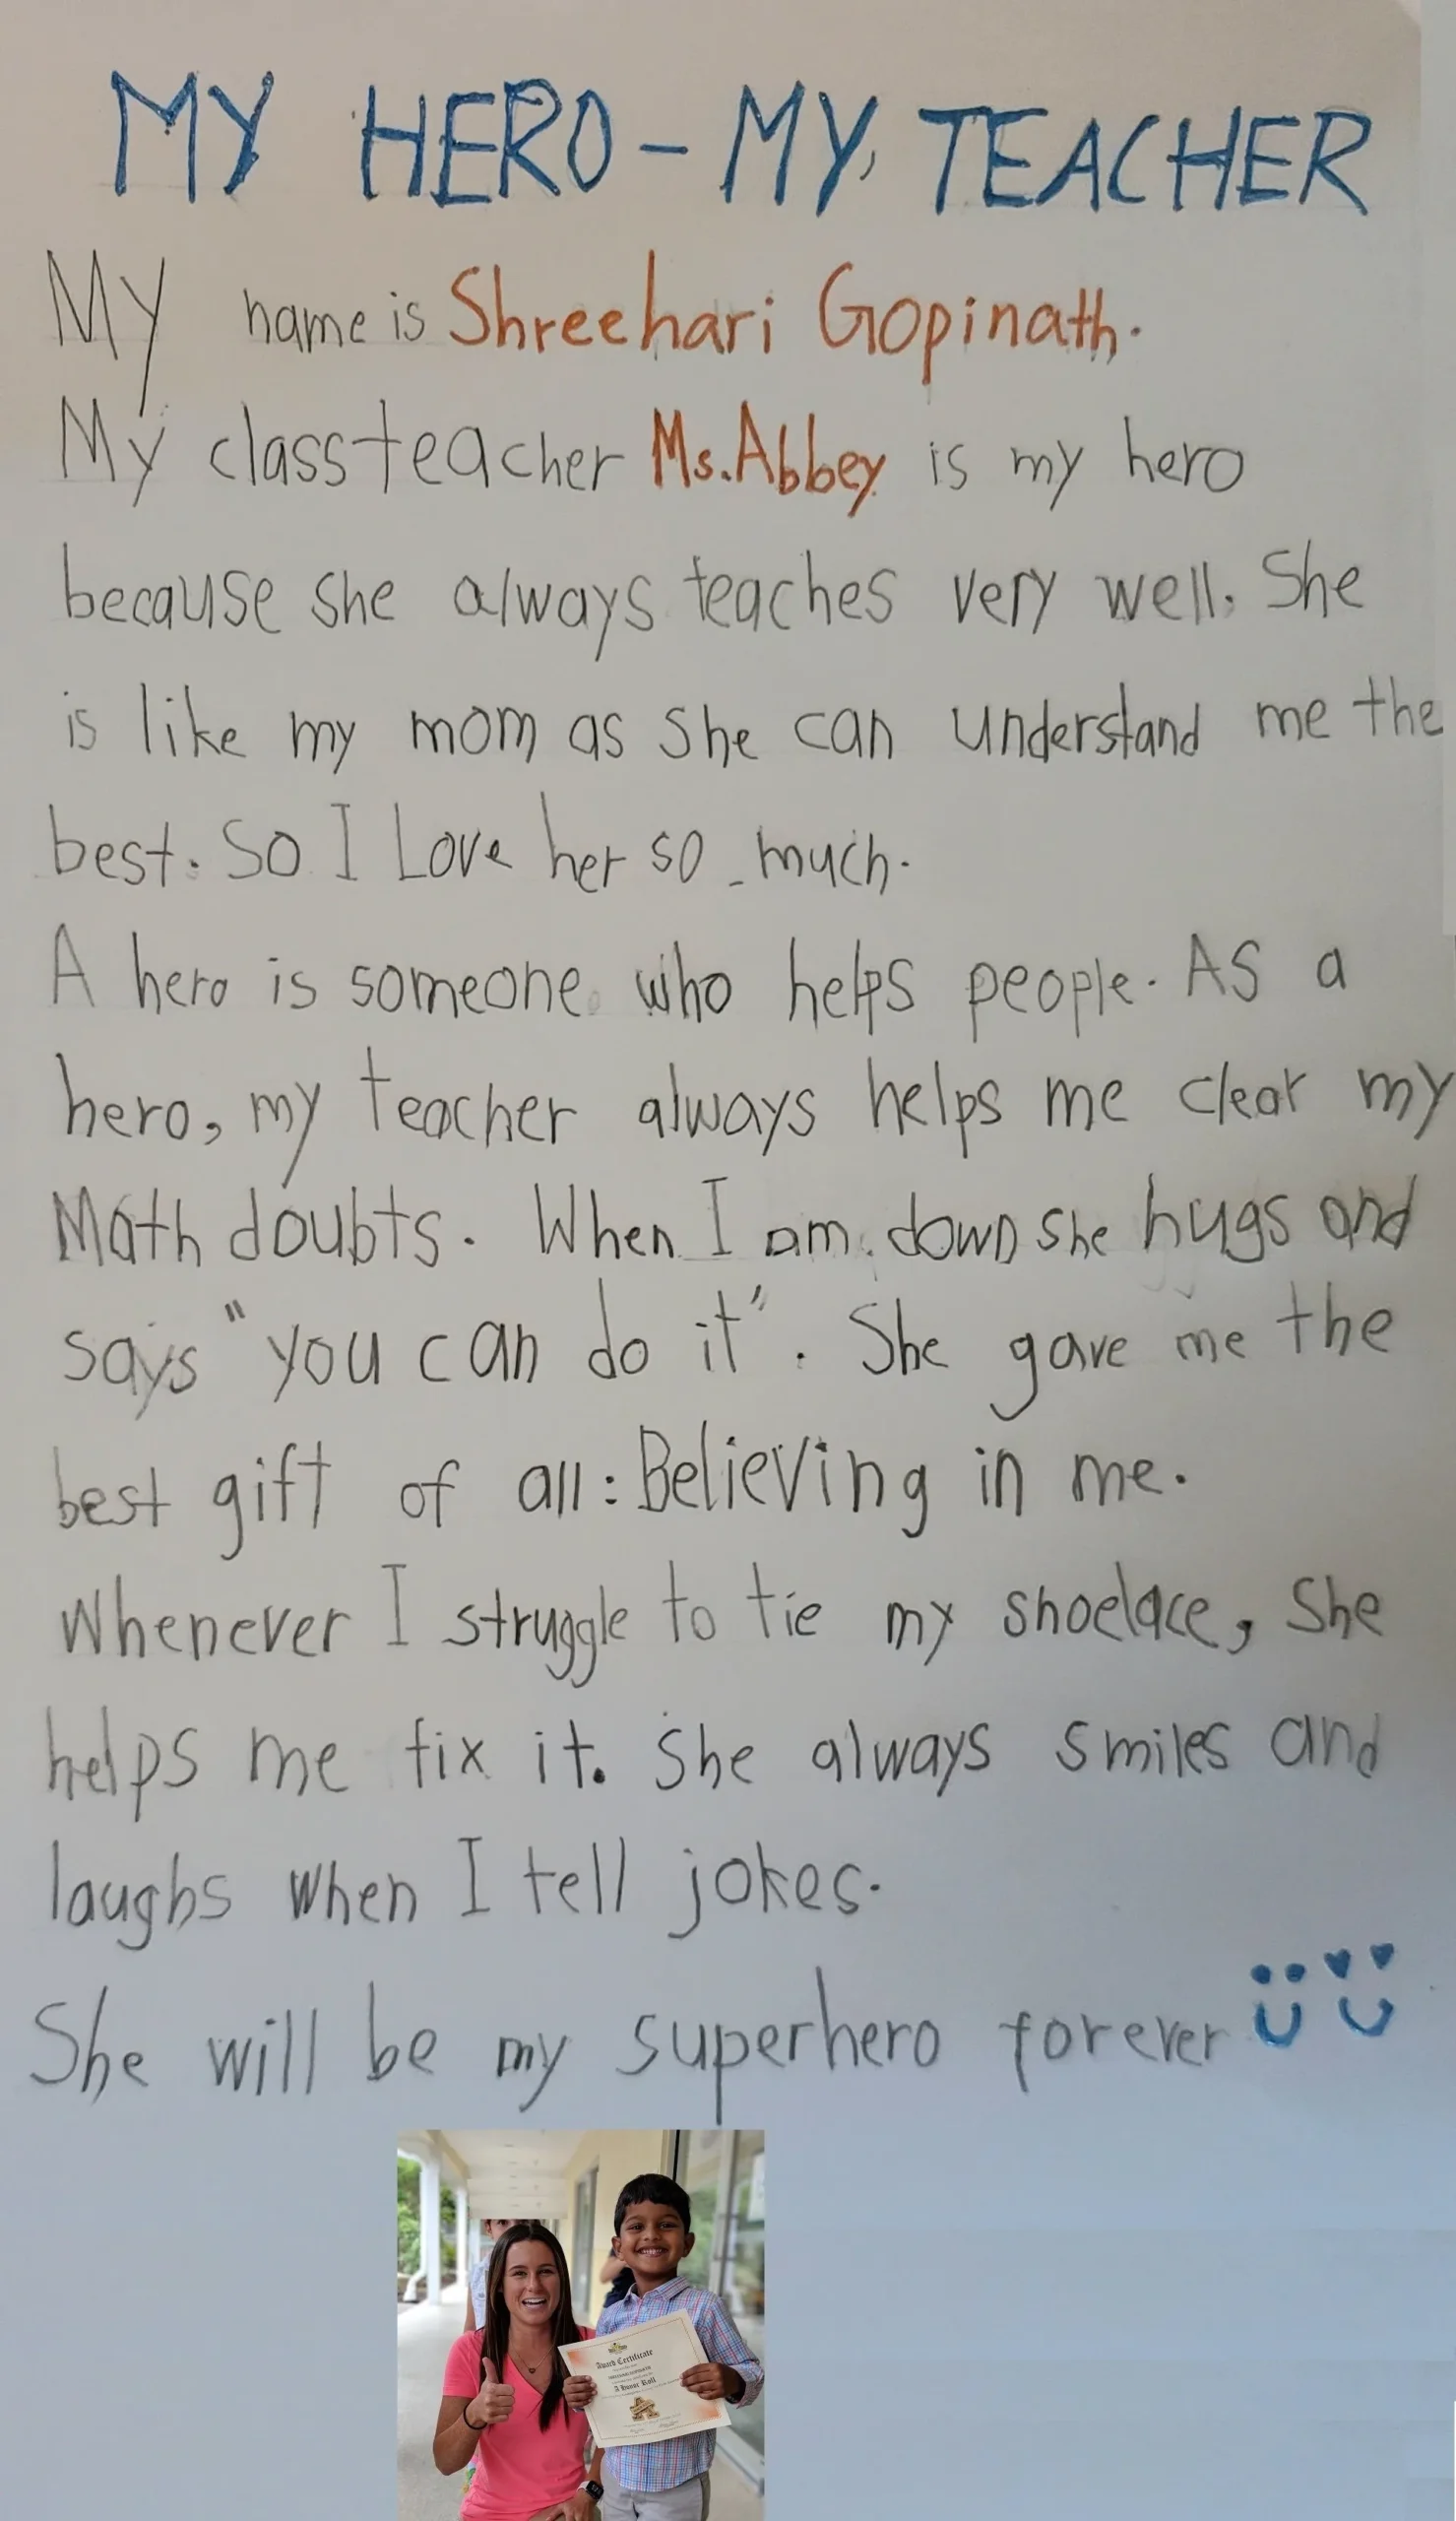 MY HERO - MY TEACHER
My name is Shreehari Gopinath.
My class teacher Ms. Abbey is my hero
because she always teaches very well. She
is like my mom as she can understand me the
best. So I Love her so much.
A hero is someone who helps people. AS a
hero, my teacher always helps me clear my
Math doubts. When I am down she hugs and
says "you can do it". She gave me the
best gift of all: Believing in me.
Whenever I struggle to tie my shoelace, she
helps me fix it. She always smiles and
laughs when I tell jokes.
She will be my superhero forever
Award Certificate
A Honor Roll